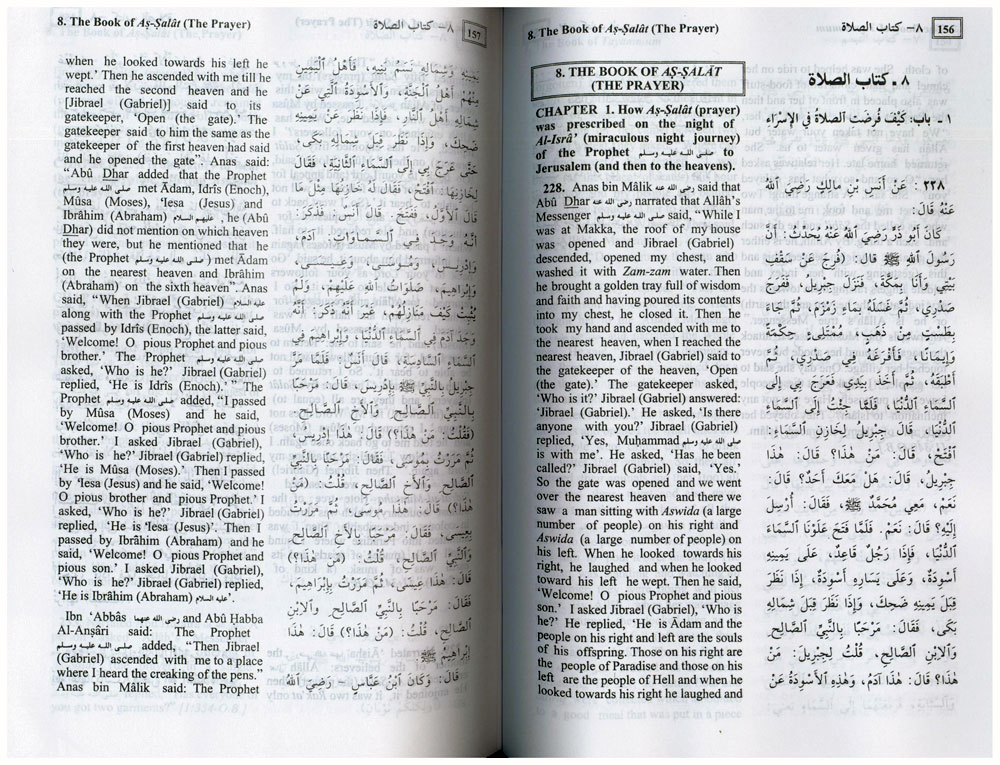 8. The Book of Aṣ-Ṣalât (The Prayer)
٨- كتاب الصلاة
156
8. THE BOOK OF AṢ-ṢALĀT
(THE PRAYER)
CHAPTER 1. How Aṣ-Ṣalât (prayer)
was prescribed on the night of
Al-Isrâ’ (miraculous night journey)
of the Prophet صلى الله عليه وسلم to
Jerusalem (and then to the heavens).
228. Anas bin Mâlik رضي الله عنه said that
Abû Dhar رضي الله عنه narrated that Allâh’s
Messenger صلى الله عليه وسلم said, “While I
was at Makka, the roof of my house
was opened and Jibrael (Gabriel)
descended, opened my chest, and
washed it with Zam-zam water. Then
he brought a golden tray full of wisdom
and faith and having poured its contents
into my chest, he closed it. Then he
took my hand and ascended with me to
the nearest heaven, when I reached the
nearest heaven, Jibrael (Gabriel) said to
the gatekeeper of the heaven, ‘Open
(the gate).’ The gatekeeper asked,
‘Who is it?’ Jibrael (Gabriel) answered:
‘Jibrael (Gabriel).’ He asked, ‘Is there
anyone with you?’ Jibrael (Gabriel)
replied, ‘Yes, Muḥammad صلى الله عليه وسلم
is with me’. He asked, ‘Has he been
called?’ Jibrael (Gabriel) said, ‘Yes.’
So the gate was opened and we went
over the nearest heaven and there we
saw a man sitting with Aswida (a large
number of people) on his right and
Aswida (a large number of people) on
his left. When he looked towards his
right, he laughed and when he looked
toward his left he wept. Then he said,
‘Welcome! O pious Prophet and pious
son.’ I asked Jibrael (Gabriel), ‘Who is
he?’ He replied, ‘He is Ādam and the
people on his right and left are the souls
of his offspring. Those on his right are
the people of Paradise and those on his
left are the people of Hell and when he
looked towards his right he laughed and
٨ ـ كتاب الصلاة
١ ـ باب: كَيْفَ فُرِضَتِ الصلاةُ فِي الإسْرَاءِ
٢٢٨ : عَنْ أَنَسِ بْنِ مالِكٍ رَضِيَ اللهُ
عَنْهُ قَالَ:
كَانَ أَبُو ذَرٍّ رَضِيَ اللهُ عَنْهُ يُحَدِّثُ: أَنَّ
رَسُولَ اللهِ ﷺ قال: (فُرِجَ عَنْ سَقْفِ
بَيْتِي وَأَنَا بِمَكَّةَ، فَنَزَلَ جِبْرِيلُ، فَفَرَجَ
صَدْرِي، ثُمَّ غَسَلَهُ بِماءِ زَمْزَمَ، ثُمَّ جَاءَ
بِطَسْتٍ مِنْ ذَهَبٍ، مُمْتَلِىءٍ حِكْمَةً
وَإِيمَانًا، فَأَفْرَغَهُ فِي صَدْرِي، ثُمَّ
أَطْبَقَهُ، ثُمَّ أَخَذَ بِيَدِي فَعَرَجَ بِي إلَى
السَّمَاءِ الدُّنْيَا، فَلَمَّا جِئْتُ إِلَى السَّمَاءِ
الدُّنْيَا، قَالَ جِبْرِيلُ لِخَازِنِ السَّمَاءِ:
افْتَحْ، قَالَ: مَنْ هٰذَا؟ قَالَ: هٰذَا
جِبْرِيلُ، قَالَ: هَلْ مَعَكَ أَحَدٌ؟ قَالَ:
نَعَمْ، مَعِي مُحَمَّدٌ ﷺ، فَقَالَ: أُرْسِلَ
إِلَيْهِ؟ قَالَ: نَعَمْ. فَلَمَّا فَتَحَ عَلَوْنَا السَّمَاءَ
الدُّنْيَا، فَإِذَا رَجُلٌ قَاعِدٌ، عَلَى يَمِينِهِ
أَسْوِدَةٌ، وَعَلَى يَسَارِهِ أَسْوِدَةٌ، إِذَا نَظَرَ
قِبَلَ يَمِينِهِ ضَحِكَ، وَإِذَا نَظَرَ قِبَلَ شِمَالِهِ
بَكَى، فَقَالَ: مَرْحَبًا بِالنَّبِيِّ الصَّالِحِ
وَالِابْنِ الصَّالِحِ، قُلْتُ لِجِبْرِيلَ: مَنْ
هٰذَا؟ قَالَ: هٰذَا آدَمُ، وَهٰذِهِ الْأَسْوِدَةُ عَنْ
8. The Book of Aṣ-Ṣalât (The Prayer)
٨- كتاب الصلاة
157
when he looked towards his left he
wept.’ Then he ascended with me till he
reached the second heaven and he
[Jibrael (Gabriel)] said to its
gatekeeper, ‘Open (the gate).’ The
gatekeeper said to him the same as the
gatekeeper of the first heaven had said
and he opened the gate”. Anas said:
“Abû Dhar added that the Prophet
صلى الله عليه وسلم met Ādam, Idrîs (Enoch),
Mûsa (Moses), ‘Iesa (Jesus) and
Ibrâhim (Abraham) عليهم السلام, he (Abu
Dhar) did not mention on which heaven
they were, but he mentioned that he
(the Prophet صلى الله عليه وسلم) met Ādam
on the nearest heaven and Ibrâhim
(Abraham) on the sixth heaven”. Anas
said, “When Jibrael (Gabriel) عليه السلام
along with the Prophet صلى الله عليه وسلم
passed by Idrîs (Enoch), the latter said,
‘Welcome! O pious Prophet and pious
brother.’ The Prophet صلى الله عليه وسلم
asked, ‘Who is he?’ Jibrael (Gabriel)
replied, ‘He is Idrîs (Enoch).’ ” The
Prophet صلى الله عليه وسلم added, “I passed
by Mûsa (Moses) and he said,
‘Welcome! O pious Prophet and pious
brother.’ I asked Jibrael (Gabriel),
‘Who is he?’ Jibrael (Gabriel) replied,
‘He is Mûsa (Moses).’ Then I passed
by ‘Iesa (Jesus) and he said, ‘Welcome!
O pious brother and pious Prophet.’ I
asked, ‘Who is he?’ Jibrael (Gabriel)
replied, ‘He is ‘Iesa (Jesus)’. Then I
passed by Ibrâhim (Abraham) and he
said, ‘Welcome! O pious Prophet and
pious son.’ I asked Jibrael (Gabriel),
‘Who is he?’ Jibrael (Gabriel) replied,
‘He is Ibrâhim (Abraham) عليه السلام’.
Ibn ‘Abbâs رضي الله عنهما and Abû Ḥabba
Al-Anṣâri said: The Prophet
صلى الله عليه وسلم added, “Then Jibrael
(Gabriel) ascended with me to a place
where I heard the creaking of the pens.”
Anas bin Mâlik said: The Prophet
يَمِينِهِ وَشِمَالِهِ نَسَمُ بَنِيهِ، فَأَهْلُ الْيَمِينِ
مِنْهُمْ أَهْلُ الْجَنَّةِ، وَالأَسْوِدَةُ الَّتِي عَنْ
شِمَالِهِ أَهْلُ النَّارِ، فَإِذَا نَظَرَ عَنْ يَمِينِهِ
ضَحِكَ، وَإِذَا نَظَرَ قِبَلَ شِمَالِهِ بَكَى،
حَتَّى عَرَجَ بِي إِلَى السَّمَاءِ الثَّانِيَةِ، فَقَالَ
لِخَازِنِهَا: افْتَحْ، فَقَالَ لَهُ خَازِنُهَا مِثْلَ مَا
قَالَ الأَوَّلُ، فَفَتَحَ. قَالَ أَنَسٌ: فَذَكَرَ:
أَنَّهُ وَجَدَ فِي السَّمَاوَاتِ آدَمَ،
وَإِدْرِيسَ، وَمُوسَى، وَعِيسَى،
وَإِبْرَاهِيمَ، صَلَوَاتُ اللهِ عَلَيْهِمْ، وَلَمْ
يُثْبِتْ كَيْفَ مَنَازِلُهُمْ، غَيْرَ أَنَّهُ ذَكَرَ: أَنَّهُ
وَجَدَ آدَمَ فِي السَّمَاءِ الدُّنْيَا، وَإِبْرَاهِيمَ فِي
السَّمَاءِ السَّادِسَةِ، قَالَ أَنَسٌ: فَلَمَّا مَرَّ
جِبْرِيلُ بِالنَّبِيِّ ﷺ بِإِدْرِيسَ، قَالَ: مَرْحَبًا
بِالنَّبِيِّ الصَّالِحِ وَالأَخِ الصَّالِحِ.
(فَقُلْتُ: مَنْ هٰذَا؟) قَالَ: هٰذَا إِدْرِيسُ،
ثُمَّ مَرَرْتُ بِمُوسَى، فَقَالَ: مَرْحَبًا بِالنَّبِيِّ
الصَّالِحِ وَالأَخِ الصَّالِحِ، قُلْتُ: (مَنْ
هٰذَا؟) قَالَ: هٰذَا مُوسَى، ثُمَّ مَرَرْتُ
بِعِيسَى، فَقَالَ: مَرْحَبًا بِالأَخِ الصَّالِحِ
وَالنَّبِيِّ الصَّالِحِ، قُلْتُ: (مَنْ هٰذَا؟)
قَالَ: هٰذَا عِيسَى، ثُمَّ مَرَرْتُ بِإِبْرَاهِيمَ،
فَقَالَ: مَرْحَبًا بِالنَّبِيِّ الصَّالِحِ وَالِابْنِ
الصَّالِحِ، قُلْتُ: (مَنْ هٰذَا؟) قَالَ: هٰذَا
إِبْرَاهِيمُ ﷺ
قَالَ: وَكَانَ ابْنُ عَبَّاسٍ - رَضِيَ اللهُ